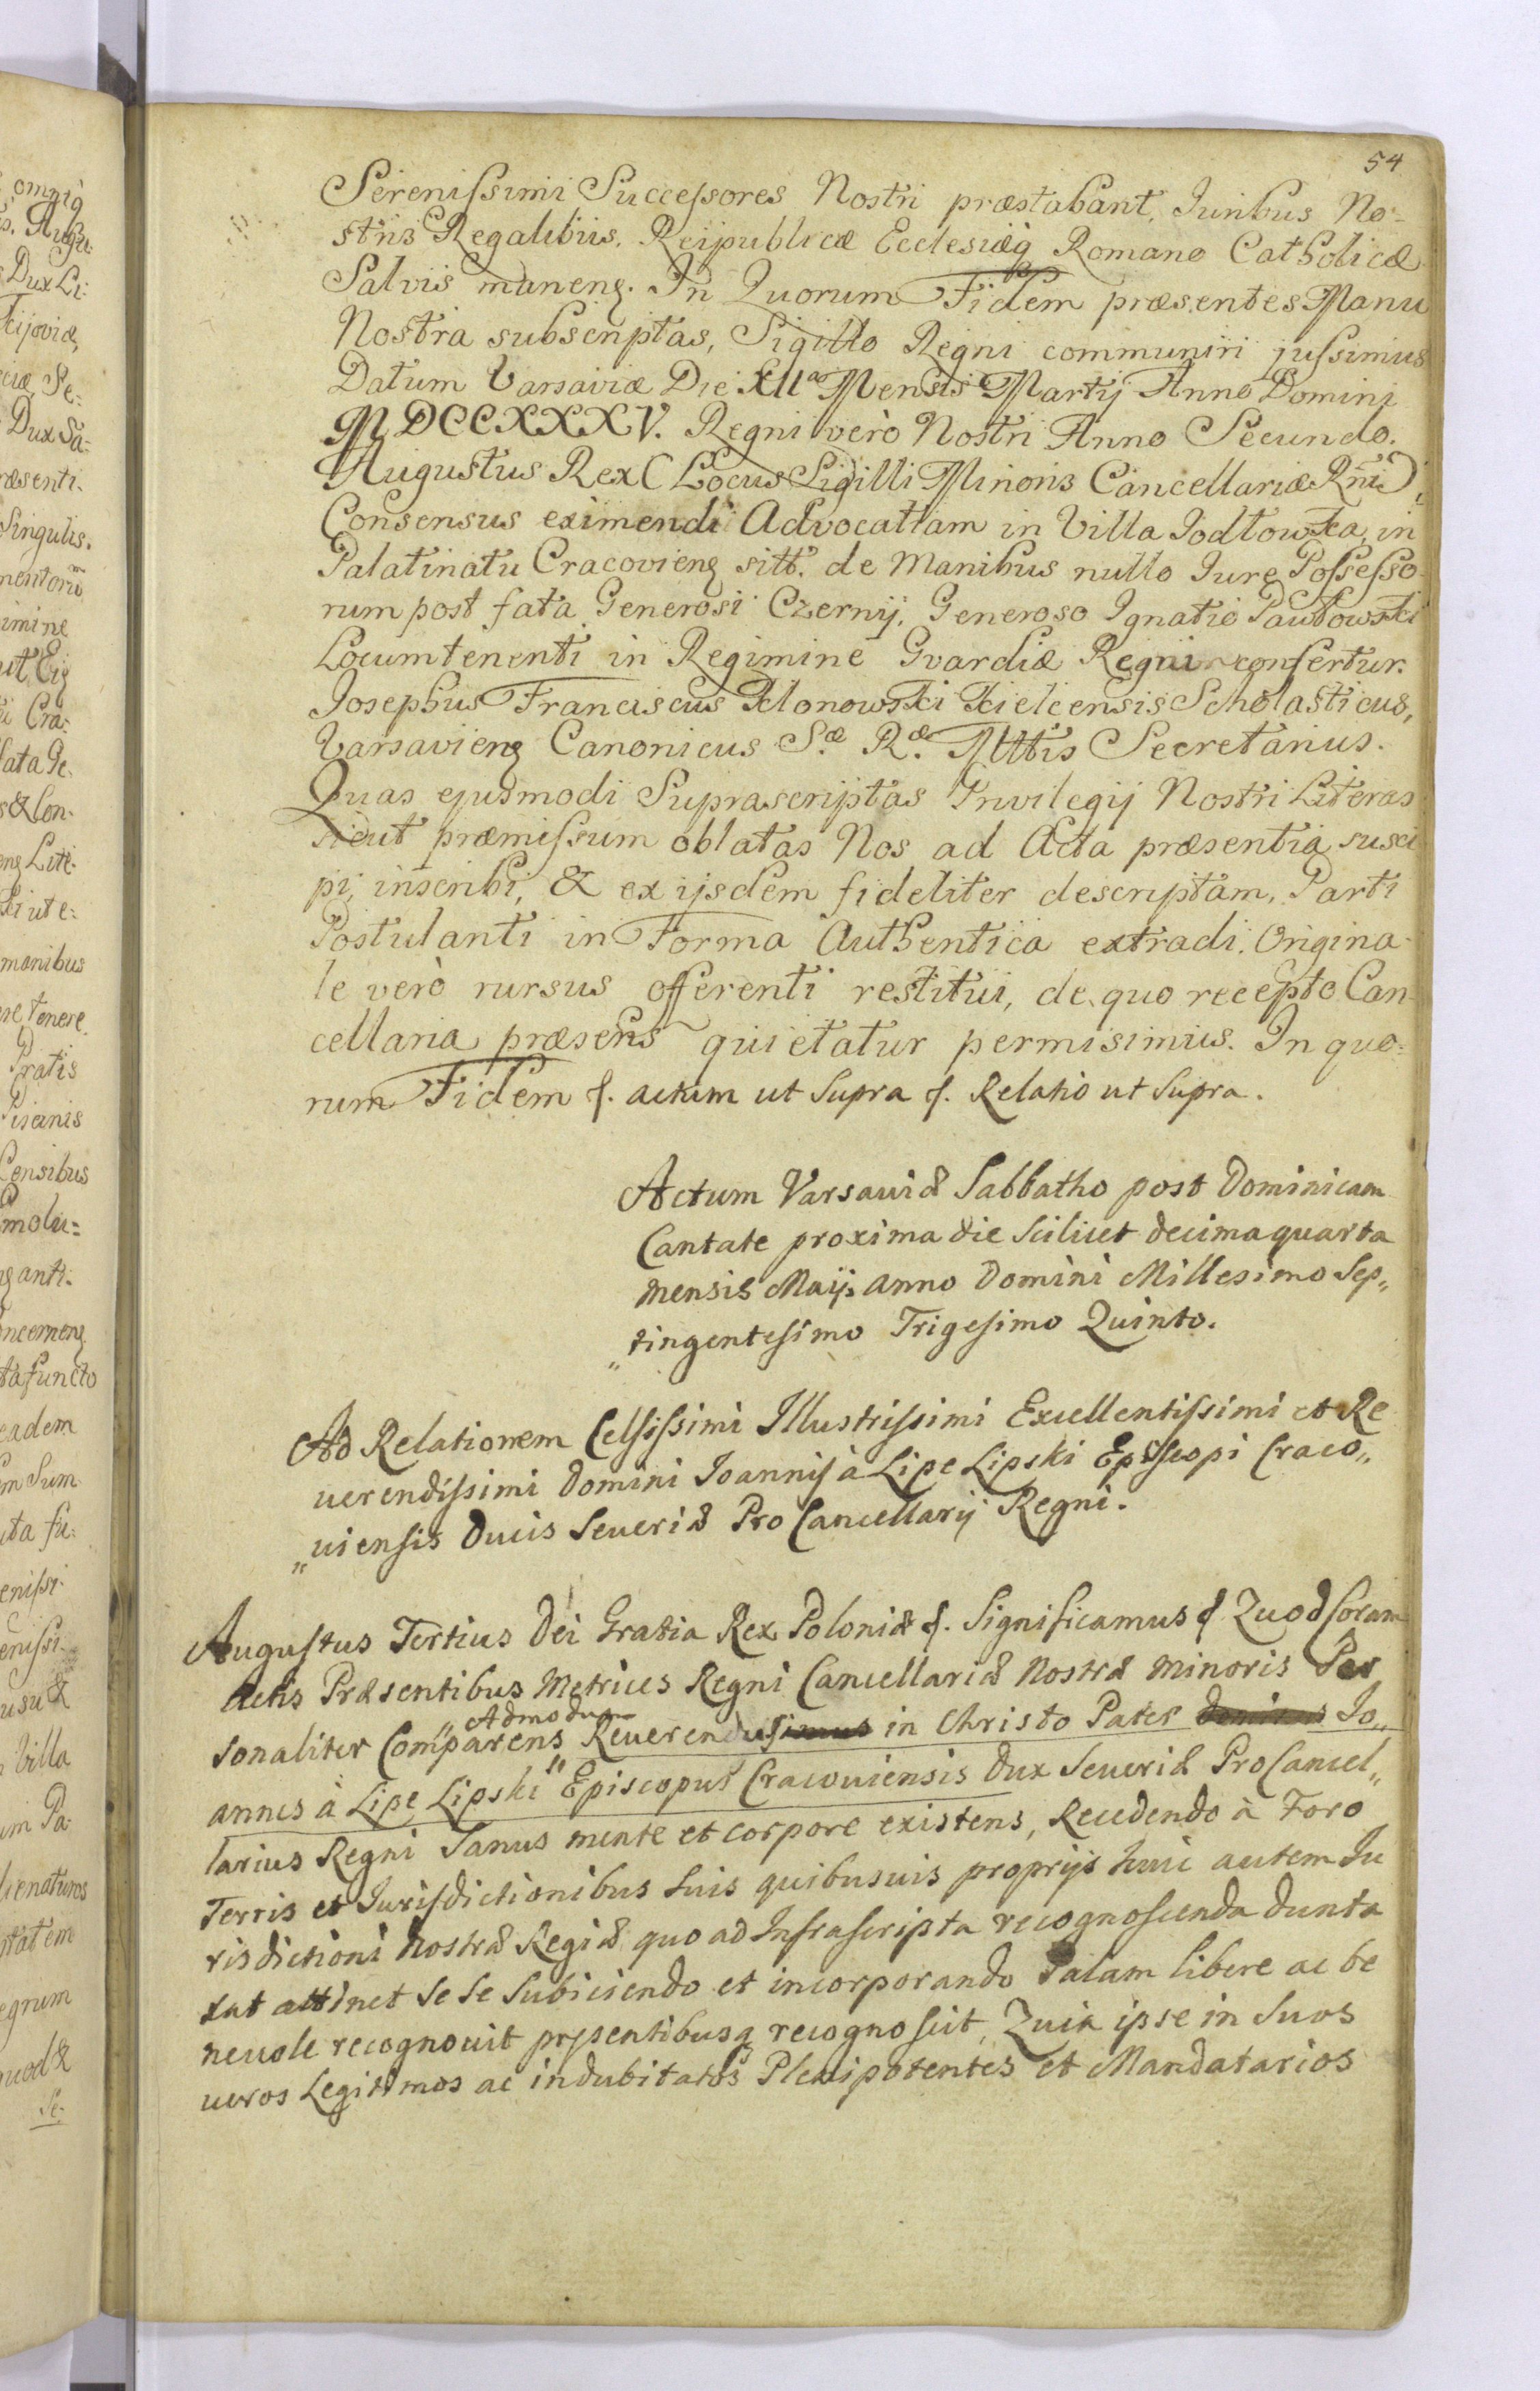 54
Serenissimi Successores Nostri præstabant, Iuribus No-
stris Regalibus, Reipublicæ Ecclesiæq Romano Catholicæ
Salvis maneng. In Quorum Fidem præsentes Manu
Nostra subscriptas, Sigillo Regni communiri jussimus
Datum Varsaviæ Die XII Mensis Martij Anno Domini
MDCCXXXV. Regni verò Nostri Anno Secundo.
Augustus Rex (Locus Sigilli Minoris Cancellariæ Rñi)
Consensus eximendi Advocatiam in Villa Jodłowka, in
Palatinatu Cracovieng sitt. de Manibus nullo Iure Possesso-
rum post fata Generosi Czernij, Generoso Ignatio Pawłowski
Locumtenenti in Regimine Gvardiæ Regni confertur.
Josephus Franciscus Klonowski Kielcensis Scholasticus,
Varsavieng Canonicus S.æ R.æ Mttis Secretarius.
Quas ejusmodi Suprascriptas Privilegij Nostri Literas
sicut præmissum oblatas Nos ad Acta præsentia susci
pi, inscribi, & ex ijsdem fideliter descriptam, Parti
Postulanti in Forma Authentica extradi. Origina-
le verò rursus offerenti restitui, de quo recepto Can-
cellaria præsens quietatur permisimus. In quo-
rum Fidem &. actum ut Supra &. Relatio ut Supra.
Actum Varsaviæ Sabbatho post Dominicam
Cantate proxima die Scilicet decima quarta
mensis Maij anno Domini Millesimo Sep„
„tingentesimo Trigesimo Quinto.
Ad Relationem Celsissimi Illustrissimi Excellentissimi et Re
uerendissimi Domini Ioannis à Lipe Lipski Episcopi Craco„
„uiensis Ducis Seueriæ Pro Cancellarij Regni.
Augustus Tertius Dei Gratia Rex Poloniæ &. Significamus & Quod Coram
Actis Præsentibus Metrices Regni Cancellariæ Nostræ minoris Per
„Admodum
sonaliter Comparens Reuerendus in Christo Pater Io„
annes à Lipe Lipski" Episcopus Cracouiensis Dux Seueriæ ProCancel„
larius Regni Sanus mente et corpore existens, Recedendo à Foro
Terris et Iurisdictionibus Suis quibusuis proprijs huic autem Iu
risdictioni Nostræ Regiæ quo ad Infrascripta recognoscenda dunta
xat attinet se se Subiciendo et incorporando Palam libere ac be
neuole recognouit præsentibusq recognoscit, Quia ipse in Suos
ueros Legitimos ac indubitatos Plenipotentes et Mandatarios